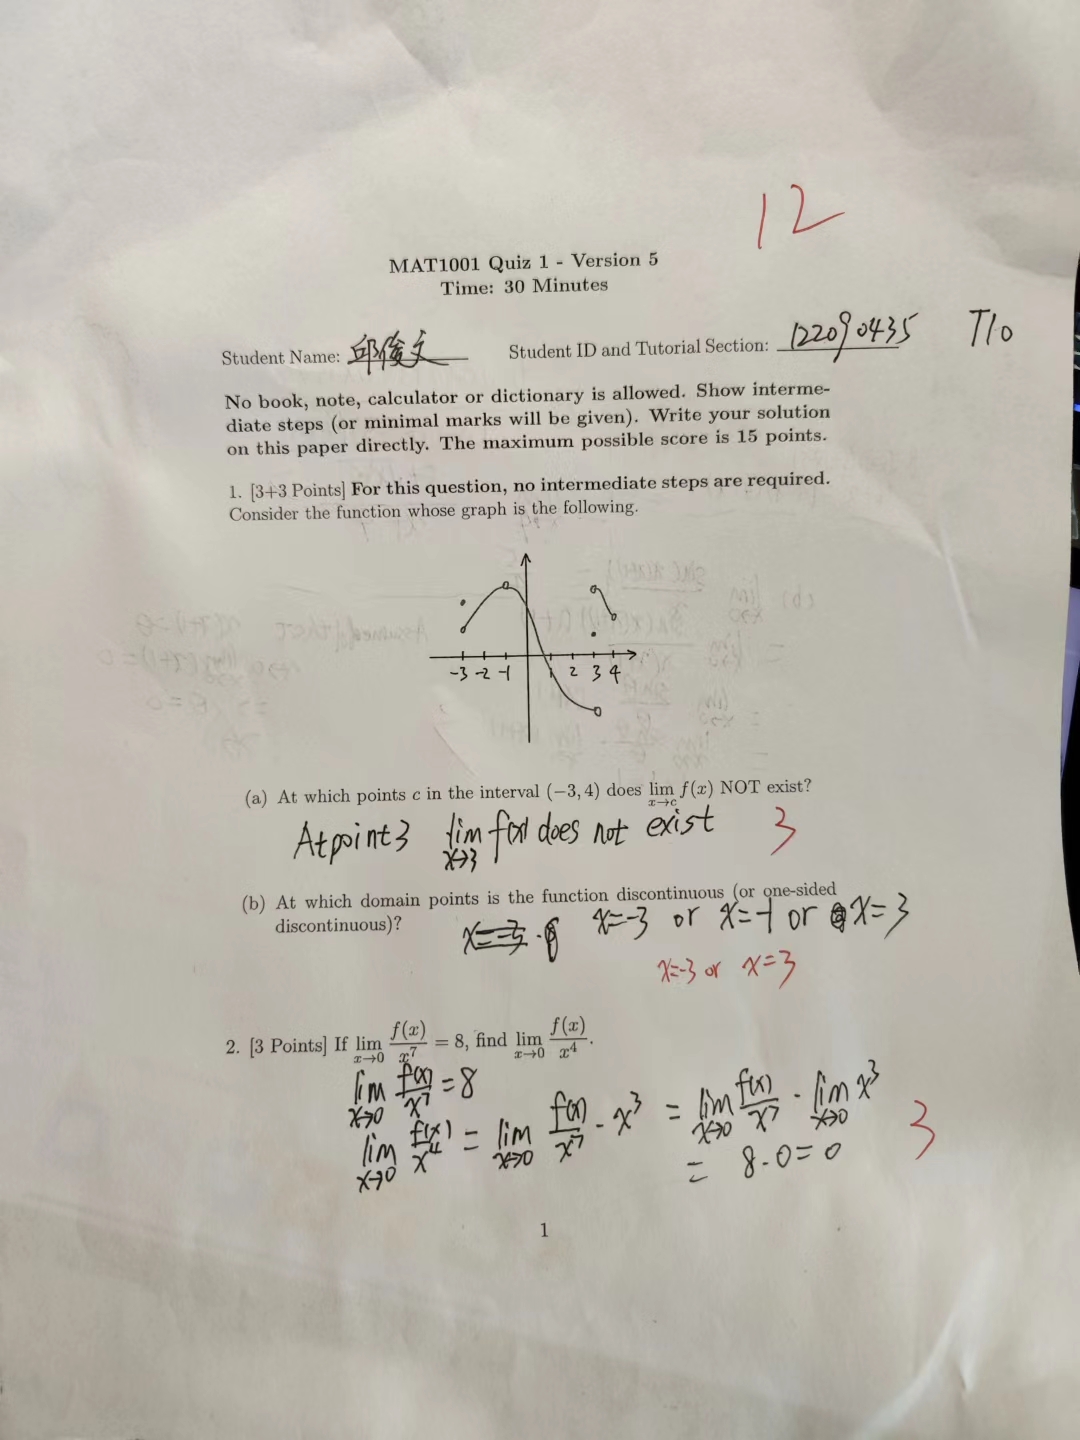 12
MAT1001 Quiz 1 - Version 5
Time: 30 Minutes
Student Name: 邱俊文 Student ID and Tutorial Section: 122090435 T10
No book, note, calculator or dictionary is allowed. Show interme-
diate steps (or minimal marks will be given). Write your solution
on this paper directly. The maximum possible score is 15 points.
1. [3+3 Points] For this question, no intermediate steps are required.
Consider the function whose graph is the following.
-3 -2 -1 1 2 3 4
(a) At which points c in the interval (−3, 4) does lim x→c f(x) NOT exist?
At point 3 lim x→3 f(x) does not exist 3
(b) At which domain points is the function discontinuous (or one-sided
discontinuous)? x=-3 or x=-1 or x=3
x=-3 or x=3
2. [3 Points] If lim x→0 f(x)/x^7 = 8, find lim x→0 f(x)/x^4.
lim x→0 f(x)/x^7 = 8
lim x→0 f(x)/x^4 = lim x→0 f(x)/x^7 · x^3 = lim x→0 f(x)/x^7 · lim x→0 x^3 3
= 8·0=0
1